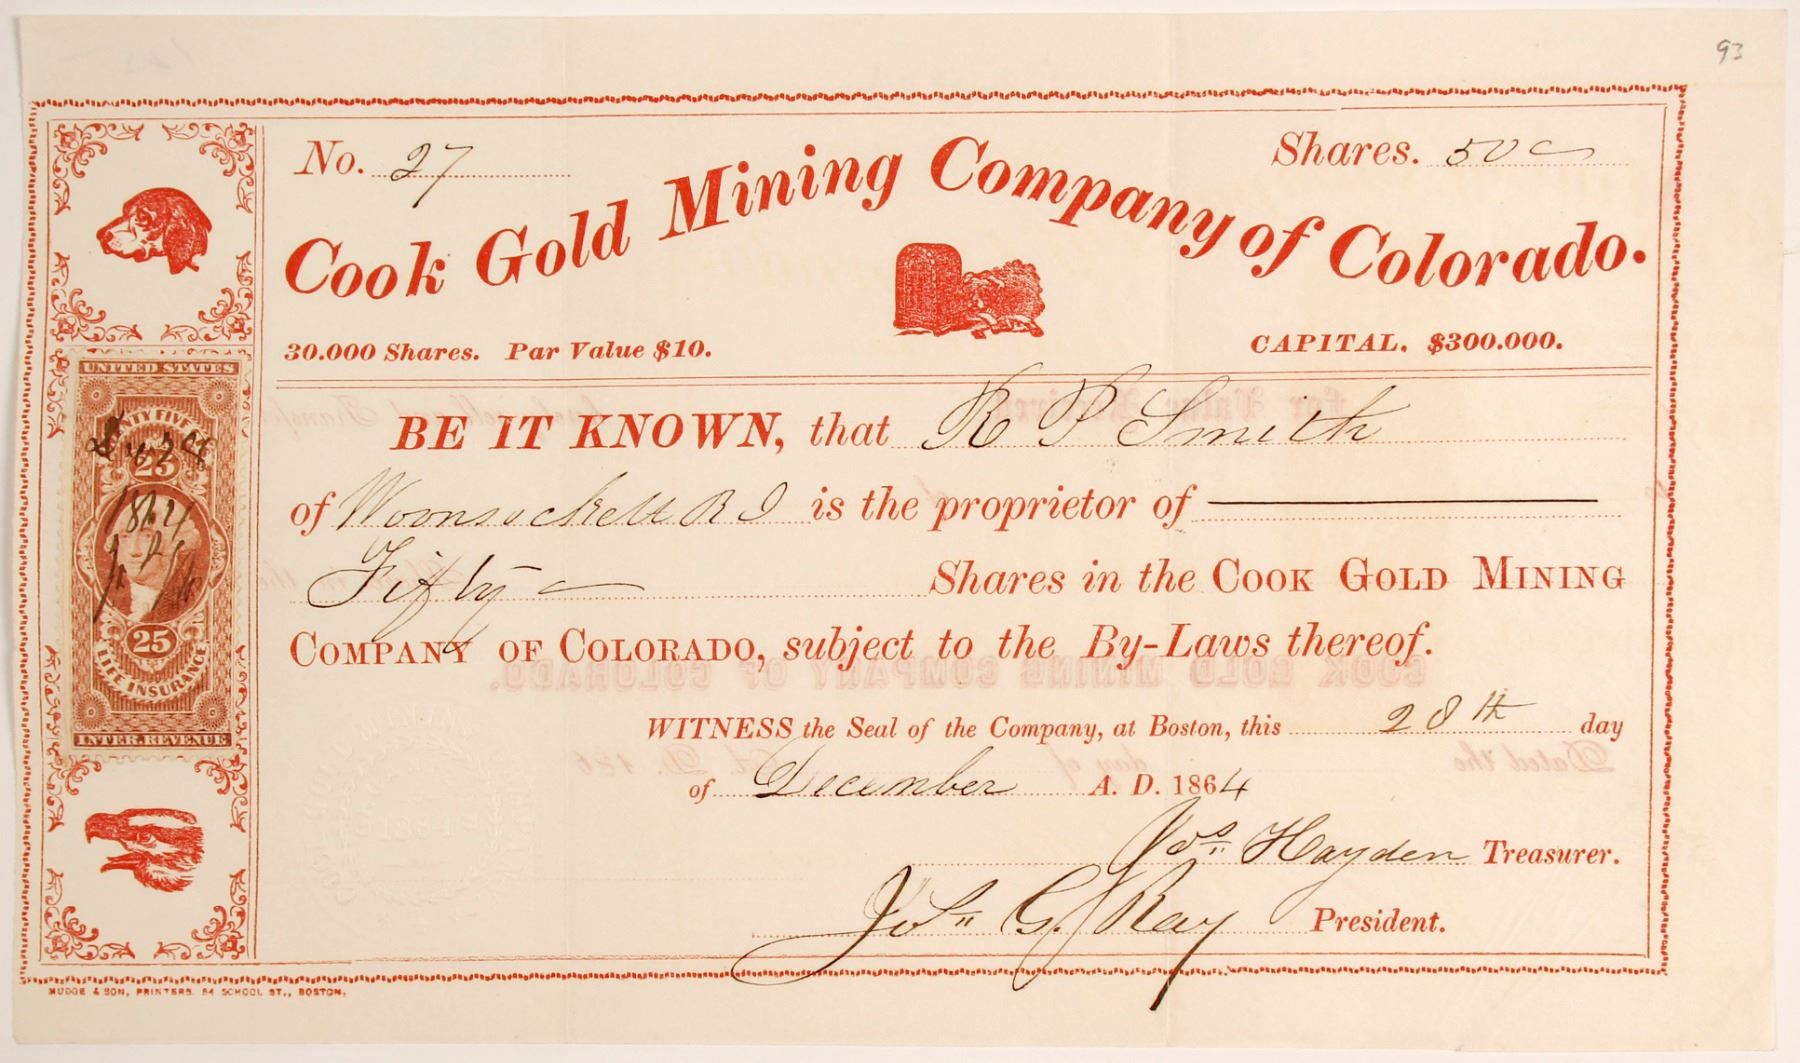 93
No. 27
Shares. 50
Cook Gold Mining Company of Colorado.
30.000 Shares. Par Value $10.
CAPITAL, $300.000.
BE IT KNOWN, that R P Smith
of Woonsockett R I is the proprietor of
Fifty Shares in the COOK GOLD MINING
COMPANY OF COLORADO, subject to the By-Laws thereof.
WITNESS the Seal of the Company, at Boston, this 28th day
of December A. D. 1864
Jos. Hayden Treasurer.
Jos. G. Ray President.
UNITED STATES
25
1864
25
LIFE INSURANCE
INTER. REVENUE
MUDGE & SON, PRINTERS. 84 SCHOOL ST., BOSTON.
COOK GOLD MINING COMPANY OF COLORADO.